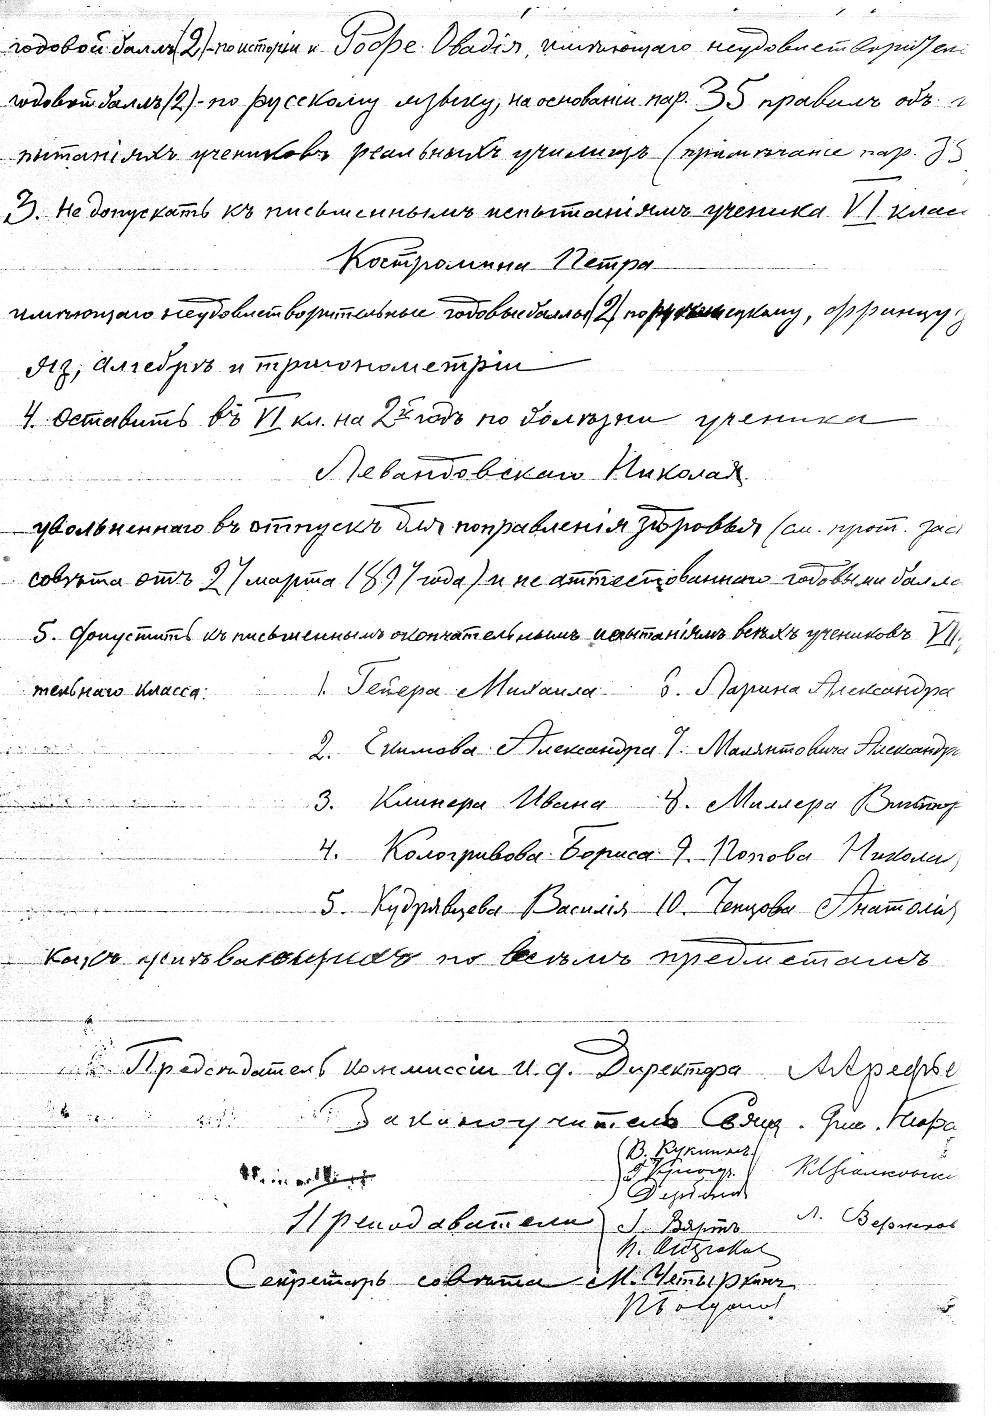 годовой баллъ (2) - по исторіи и Гофе Овадія, имѣющаго неудовлетворител
годовой баллъ (2) - по русскому языку, на основаніи пар. 35 правилъ объ и
пытаніяхъ учениковъ реальныхъ училищъ (примѣчаніе пар. 35
3. Не допускать къ письменнымъ испытаніямъ ученика VI клас
Костромина Петра
имѣющаго неудовлетворительные годовые баллы (2) по немецкому, француз
яз, алгебрѣ и тригонометріи
4. Оставить въ VI кл. на 2й годъ по болѣзни ученика
Левандовскаго Николая
увольненнаго въ отпускъ для поправленія здоровья (см. прот. зас
совѣта отъ 27 марта 1897 года) и не аттестованнаго годовыми балла
5. Допустить къ письменнымъ окончательнымъ испытаніямъ всѣхъ учениковъ VII
тельнаго класса: 1. Гейера Михаила 6. Ларина Александра
2. Екимова Александра 7. Малянтовича Александр
3. Клинера Ивана 8. Миллера Виктор
4. Кологривова Бориса 9. Попова Никола
5. Кудрявцева Василія 10. Ченцова Анатолія
какъ успѣвающихъ по всѣмъ предметамъ
Предсѣдатель коммиссіи и. д. Директора А Арефье
Законоучитель Свящ.
В. Кукинъ
Преподаватели
Л. Вяртъ
Секретарь совѣта М. Четыркинъ